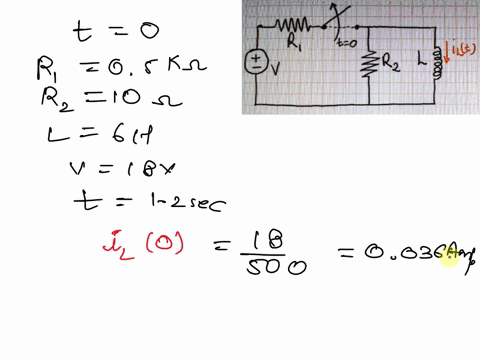 t = 0
R1 = 0.5 KΩ
R2 = 10 Ω
L = 6H
V = 18V
t = 1-2 sec
iL (0) = 18/500 = 0.036 Amp
R1
t=0
V
R2
L
iL(t)